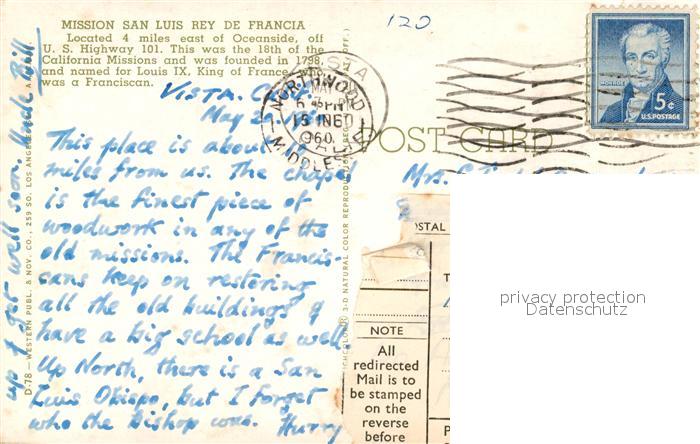 120
MISSION SAN LUIS REY DE FRANCIA
Located 4 miles east of Oceanside, off
U. S. Highway 101. This was the 18th of the
California Missions and was founded in 1798,
and named for Louis IX, King of France, who
was a Franciscan.
VISTA
MAY
NORTHWOOD
6 45 PM
15 JN 60
1960
MIDDLESEX
MONROE
5¢
U.S. POSTAGE
POST CARD
Vista. Calif.
May 2
This place is about
miles from us. The chapel
is the finest piece of
woodwork in any of the
old missions. The Francis-
cans keep on restoring
all the old buildings &
have a big school as well
Up North, there is a San
Luis Obispo, but I forget
who the bishop was. Hurry
up & get well soon Uncle Bill
D-78 — WESTERN PUBL. & NOV. CO., 259 SO. LOS ANGELES
3-D NATURAL COLOR REPRODUCTION
Mrs.
OSTAL
NOTE
All
redirected
Mail is to
be stamped
on the
reverse
before
privacy protection
Datenschutz